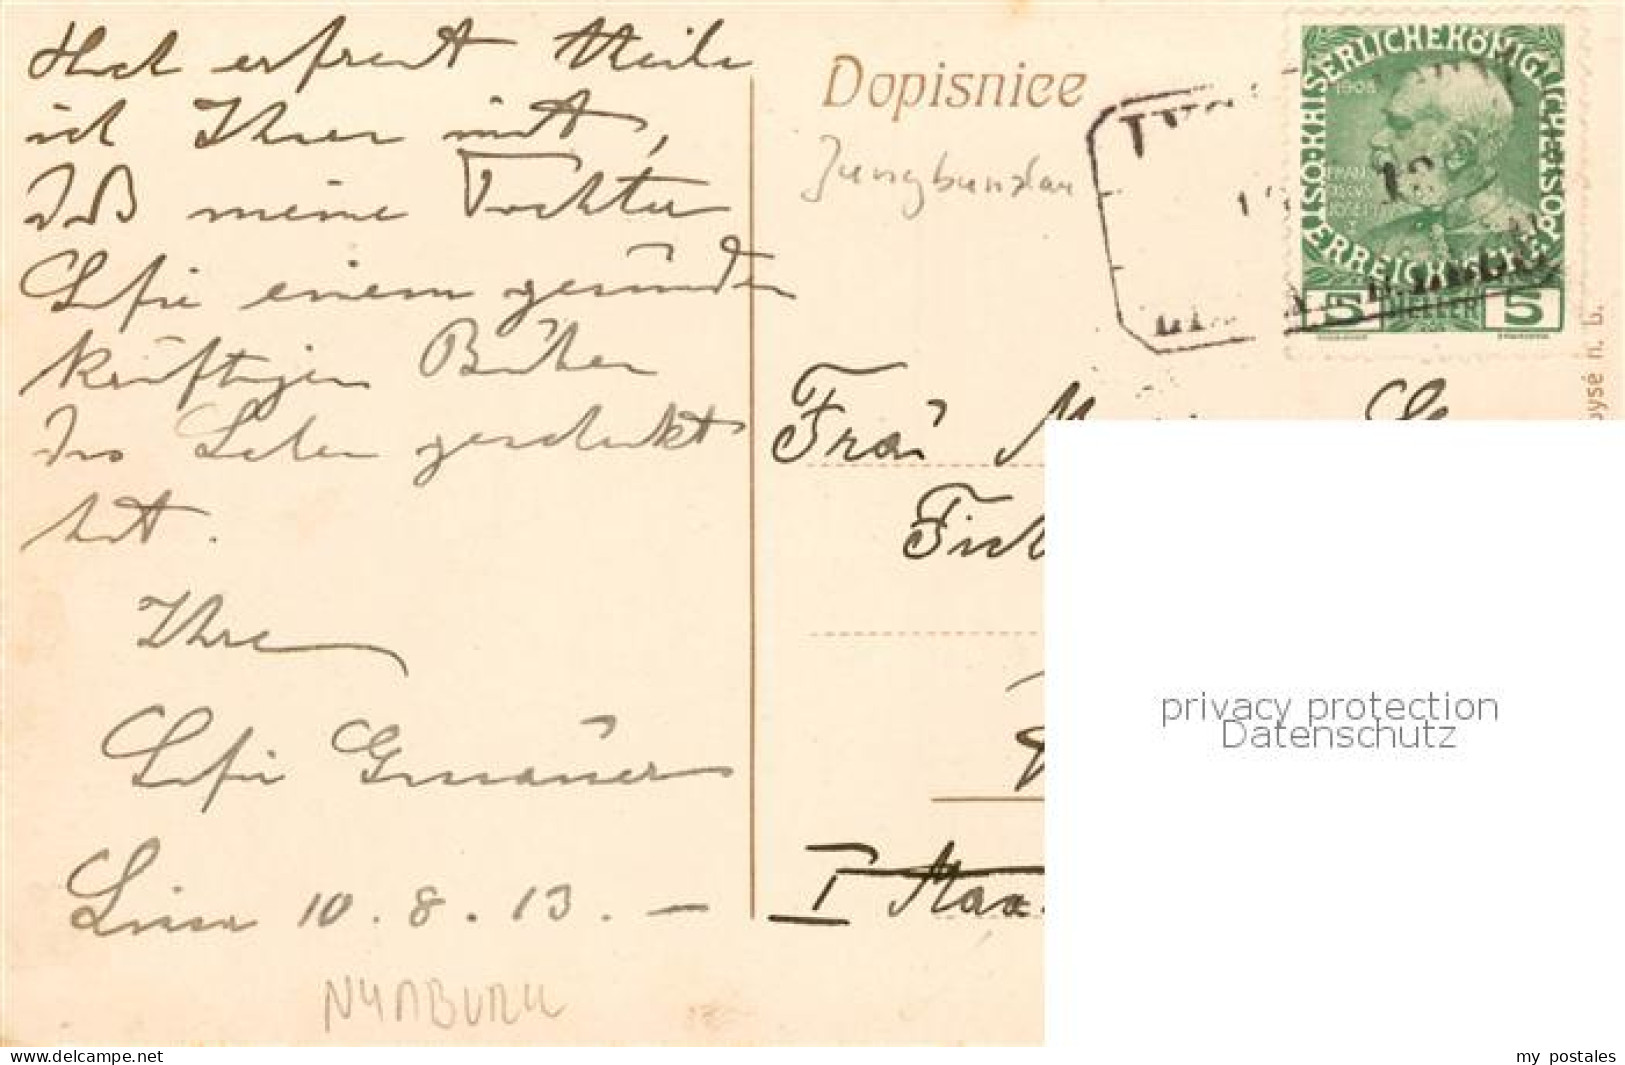 Hoch erfreut theile
ich Ihnen mit,
daß meine Tochter
Sofie einem gesunden
kräftigen Buben
das Leben geschenkt
hat.
Ihre
Sofie
Lissa 10.8.13. —
NYMBURK
Dopisnice
Jungbunzlau
KAISERLICHE KÖNIGLICHE POST
ÖSTERREICHISCHE
1908
5 HELLER 5
Frau
I
privacy protection
Datenschutz
delcampe.net
my_postales